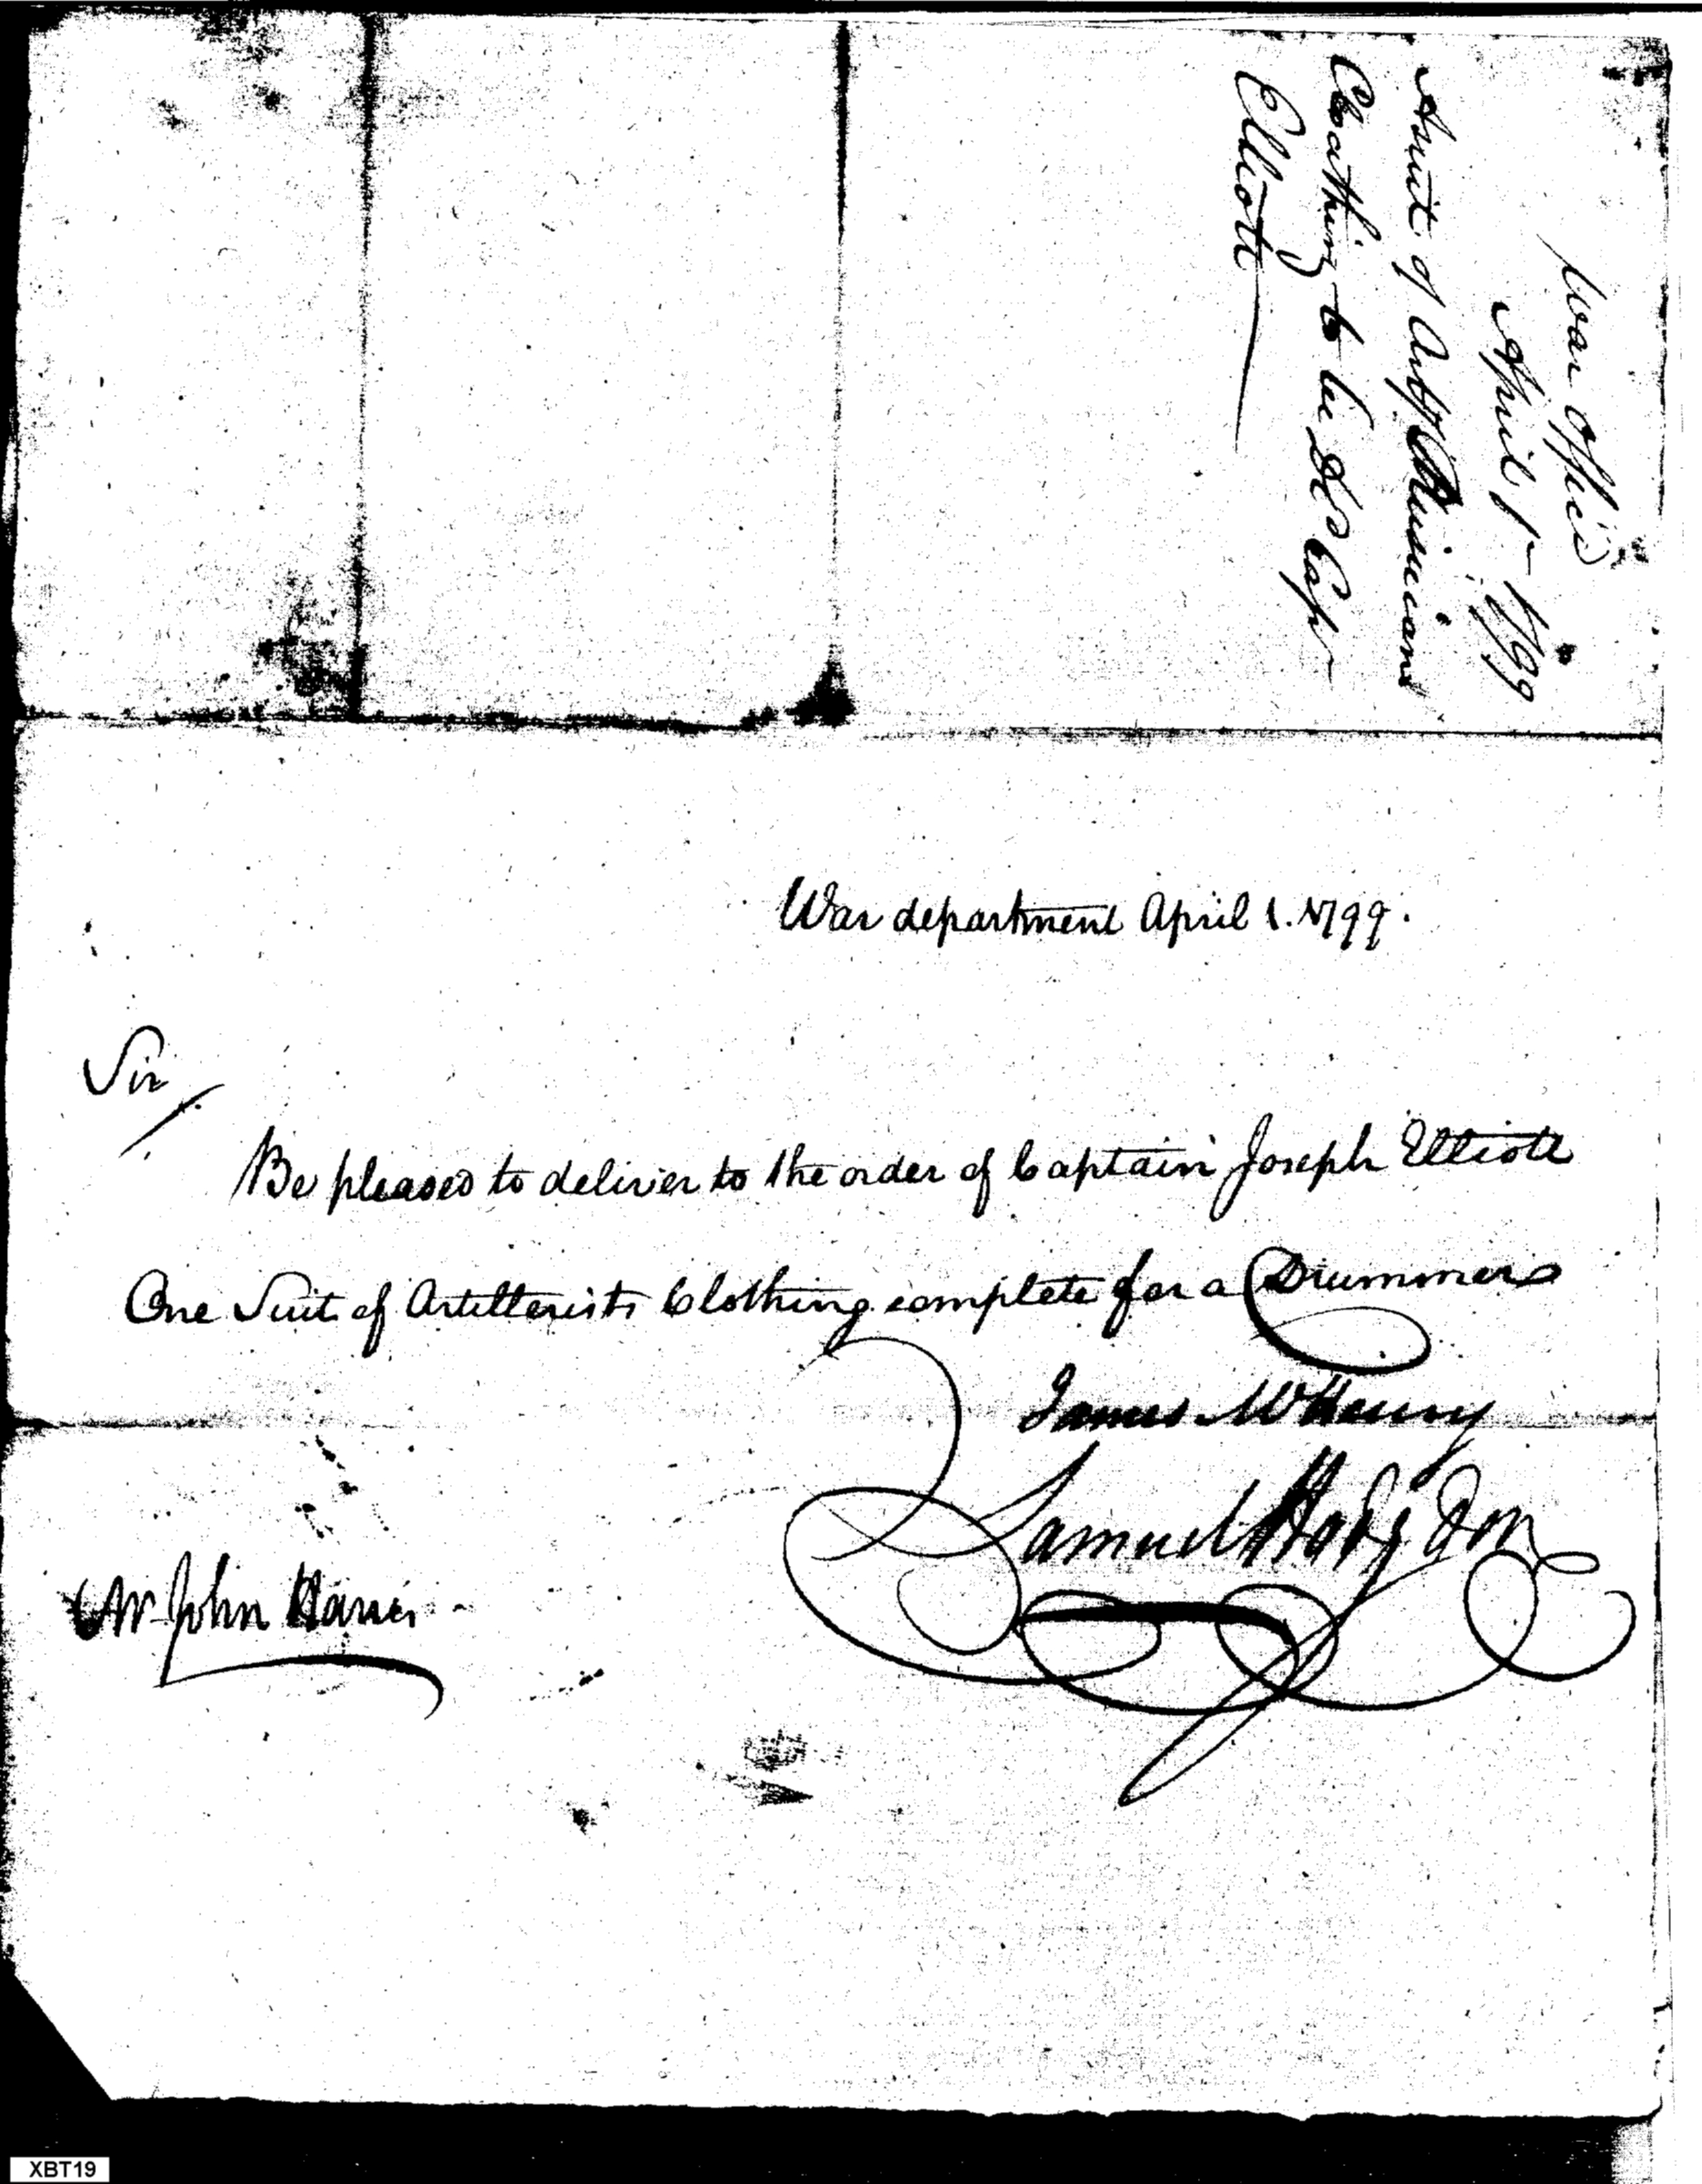 War Office
April 1 - 1799
A suit of Arty Musicians
Cloathing to be dld Capt
Elliott
War department April 1. 1799.
Sir
Be pleased to deliver to the order of Captain Joseph Elliott
One Suit of Artillerists Clothing complete for a Drummer
James McHenry
Samuel Hodgdon
Mr John Harris
XBT19